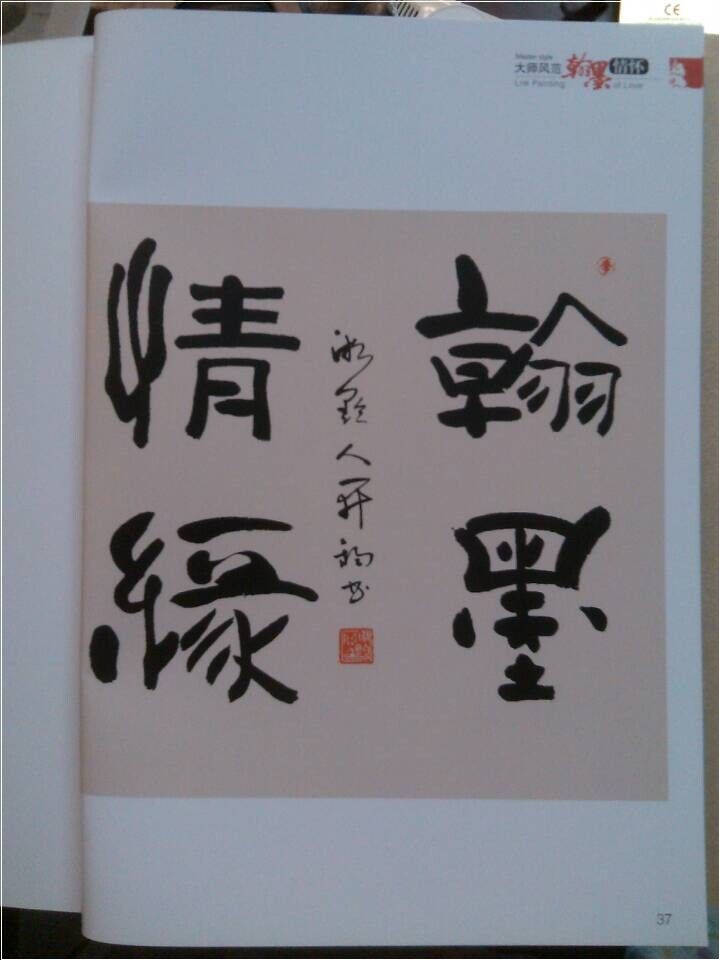 Master style
大师风范 翰墨 情怀
Link Painting of Love
翰墨
情缘
人开
书
37
CE